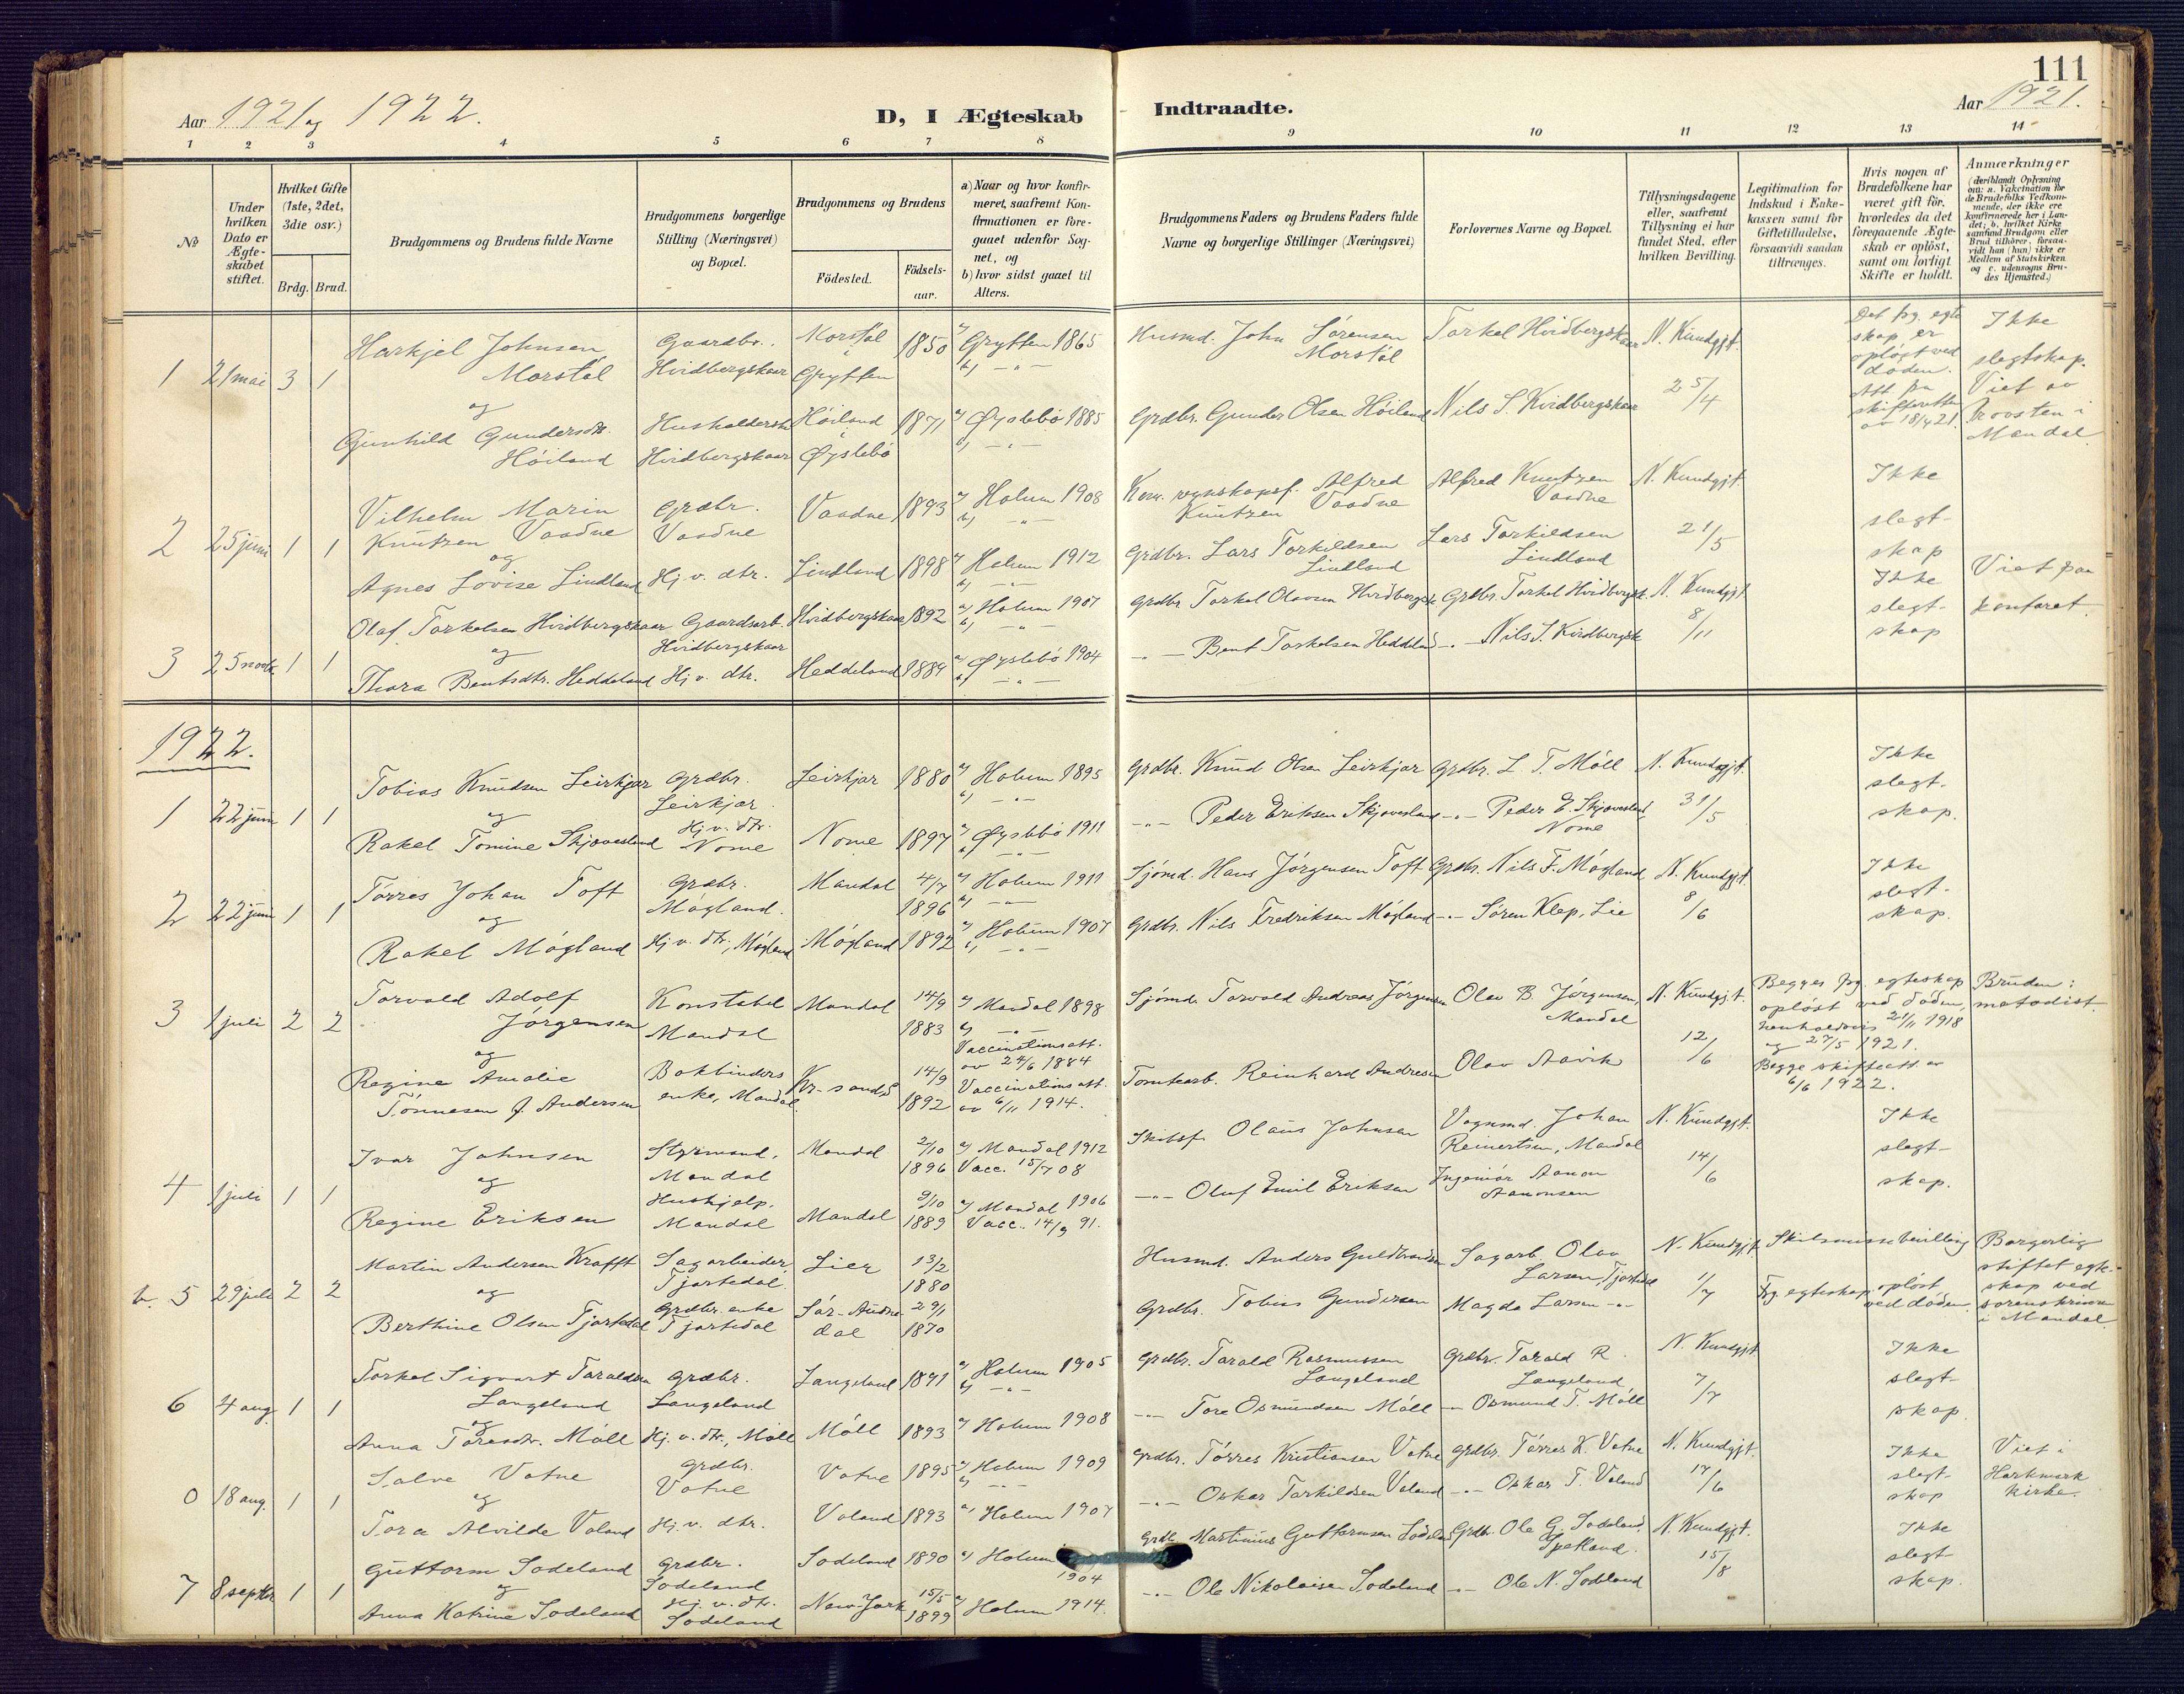 111
Aar 1921 og 1922.
D, I Ægteskab
Indtraadte.
Aar 1921.
1 2 3 4 5 6 7 8 9 10 11 12 13 14
No
Under hvilken Dato er Ægteskabet stiftet.
Hvilket Gifte (1ste, 2det, 3die osv.)
Brdg. Brud.
Brudgommens og Brudens fulde Navne
Brudgommens borgerlige Stilling (Næringsvei) og Bopæl.
Brudgommens og Brudens
Födested.
Födsels-aar.
a) Naar og hvor konfirmeret, saafremt Konfirmationen er foregaaet udenfor Sognet, og
b) hvor sidst gaaet til Alters.
Brudgommens Faders og Brudens Faders fulde Navne og borgerlige Stillinger (Næringsvei)
Forlovernes Navne og Bopæl.
Tillysningsdagene eller, saafremt Tillysning ei har fundet Sted, efter hvilken Bevilling.
Legitimation for Indskud i Enkekassen samt for Giftetilladelse, forsaavidt saadan tiltrænges.
Hvis nogen af Brudefolkene har været gift för, hvorledes da det foregaaende Ægteskab er oplöst, samt om lovligt Skifte er holdt.
Anmærkninger (deriblandt Oplysning om: a. Vakcination for de Brudefolks Vedkommende, der ikke ere konfirmerede her i Landet; b. hvilket Kirkesamfund Brudgom eller Brud tilhörer, forsaavidt han (hun) ikke er Medlem af Statskirken og c. udensogns Brudes Hjemsted.)
1 21 mai 3 1
Harkjel Johnsen Morstøl
Gaardbr. Hvidbergskaar
Morstøl i Grytten 1850
a) Grytten 1865
b) - " -
Husmd. John Sørensen Morstøl
Torkel Hvidbergskaar
N. Kundgjt. 25/4
Det frg. egteskap er opløst ved døden. Att. fra skifteretten av 18/4 21.
Ikke slegtskap. Viet av provsten i Mandal
og
Gunhild Gundersdtr. Høiland
Husholderske Hvidbergskaar
Høiland i Øyslebø 1871
a) Øyslebø 1885
b) - " -
Grdbr. Gunder Olsen Høiland
Nils S. Kvidbergskaar
2 25 juni 1 1
Vilhelm Marin Knutzen Vaadne
Grdbr. Vaadne
Vaadne 1893
a) Holum 1908
b) - " -
Kom. regnskapsf. Alfred Knutzen Vaadne
Alfred Knutzen Vaadne
N. Kundgjt. 21/5
Ikke slegtskap
og
Agnes Lovise Lindland
Hj. v. dtr.
Lindland 1898
a) Holum 1912
b) - " -
Grdbr. Lars Torkildsen Lindland
Lars Torkildsen Lindland
3 25 novbr. 1 1
Olaf Torkelsen Hvidbergskaar
Gaardsarb. Hvidbergskaar
Hvidbergskaar 1892
a) Holum 1907
b) - " -
Grdbr. Torkel Olavsen Hvidbergsk
Grdbr. Torkel Hvidbergsk.
N. Kundgjt. 8/11
Ikke slegtskap
Viet paa kontoret
og
Thora Bentsdtr. Heddeland
Hj. v. dtr.
Heddeland 1889
a) Øyslebø 1904
b) - " -
- " - Bent Torkelsen Heddeland
- " - Nils S. Kvidbergsk
1922.
1 22 juni 1 1
Tobias Knudsen Leirkjær
Grdbr. Leirkjær.
Leirkjær 1880
a) Holum 1895
b) - " -
Grdbr. Knud Olsen Leirkjær
Grdbr. L. T. Møll
N. Kundgjt. 31/5
Ikke slegtskap.
og
Rakel Tomine Skjævesland
Hj. v. dtr. Nome
Nome 1897
a) Øyslebø 1911
b) - " -
- " - Peder Eriksen Skjævesland
- " - Peder E. Skjævesland Nome
2 22 juni 1 1
Tørres Johan Toft
Grdbr. Møgland.
Mandal 4/7 1896
a) Holum 1911
b) - " -
Sjømd. Hans Jørgensen Toft
Grdbr. Nils F. Møgland
N. Kundgjt. 8/6
Ikke slegtskap.
og
Rakel Møgland
Hj. v. dtr, Møgland
Møgland 1892
a) Holum 1907
b) - " -
Grdbr. Nils Fredriksen Møgland
- " - Søren Klep, Lie
3 1 juli 2 2
Torvald Adolf Jørgensen
Konstabel Mandal
Mandal 14/9 1883
a) Mandal 1898
b) - " -
Vaccinationsatt. av 24/6 1884
Sjømd. Torvald Andreas Jørgensen
Olav B. Jørgensen, Mandal
N. Kundgjt. 12/6
Begges frg. egteskap opløst ved døden henholdsvis 21/11 1918 og 27/5 1921.
Begge skifteatt. av 6/6 1922.
Bruden: metodist.
og
Regine Amalie Tønnesen f. Andersen
Bokbinders enke, Mandal.
Kr-sand S 14/9 1892
Vaccinationsatt. av 6/11 1914.
Tomtearb. Reinhard Andresen
Olav Aavik
4 1 juli 1 1
Ivar Johnsen
Styrmand, Mandal
Mandal 2/10 1896
a) Mandal 1912
Vacc. 15/7 08
Skibsf. Olaus Johnsen
Vognmd. Johan Reinertsen, Mandal
N. Kundgjt. 14/6
Ikke slegtskap.
og
Regine Eriksen
Hushjelp, Mandal
Mandal 9/10 1889
a) Mandal 1906
Vacc. 14/9 91.
- " - Oluf Emil Eriksen
Ingeniør Aanon Aanonsen
b. 5 29 juli 2 2
Martin Andersen Krafft
Sagarbeider, Tjortedal
Lier 13/2 1880
Husmd. Anders Guldbrandsen
Sagarb. Olav Larsen, Tjortedal
N. Kundgjt. 1/7
Skilsmissebevilling
Borgerlig stiftet egteskap ved sorenskriveren i Mandal
og
Berthine Olsen Tjortedal
Grdbr. enke Tjortedal
Sør-Audnedal 29/1 1870
Grdbr. Tobias Gundersen
Magda Larsen - " -
Frg. egteskap opløst ved døden.
6 4 aug. 1 1
Torkel Sigvart Taraldsen Langeland
Grdbr. Langeland
Langeland 1891
a) Holum 1905
b) - " -
Grdbr. Tarald Rasmussen Langeland
Grdbr. Tarald R. Langeland
N. Kundgjt. 7/7
Ikke slegtskap.
og
Anna Toresdtr. Møll
Hj. v. dtr., Møll
Møll 1893
a) Holum 1908
- " - Tore Osmundsen Møll
- " - Osmund T. Møll
0 18 aug. 1 1
Salve Votne
Grdbr. Votne
Votne 1895
a) Holum 1909
b) - " -
Grdbr. Tørres Kristiansen Votne
Grdbr. Tørres K. Votne
N. Kundgjt. 17/6
Ikke slegtskap
Viet i Harkmark kirke.
og
Tora Alvilde Valand
Hj. v. dtr.
Valand 1893
a) Holum 1907
- " - Oskar Torkildsen Valand
- " - Oskar T. Valand
7 8 septbr 1 1
Guttorm Sodeland
Grdbr. Sodeland
Sodeland 1890
a) Holum 1904
Grdb. Martinius Guttormsen Sodeland
Grdbr. Ole G. Sodeland,
N. Kundgjt. 15/8
Ikke slegtskap.
og
Anna Katrine Sodeland
Hj. v. dtr. Sodeland
New-York 15/5 1899
a) Holum 1914.
- " - Ole Nikolaisen Sodeland
- " - Ole N. Sodeland